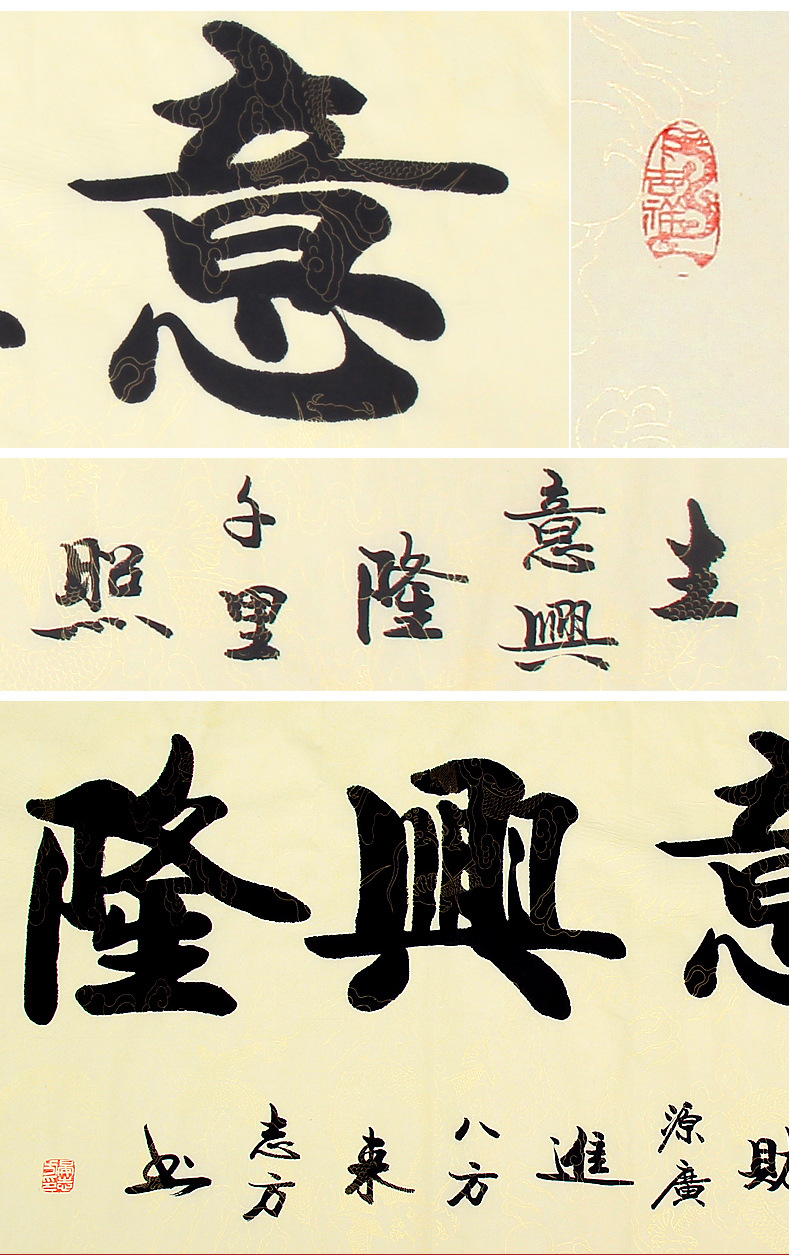 意
生意興隆千里照
意興隆
財源廣進八方來志方书